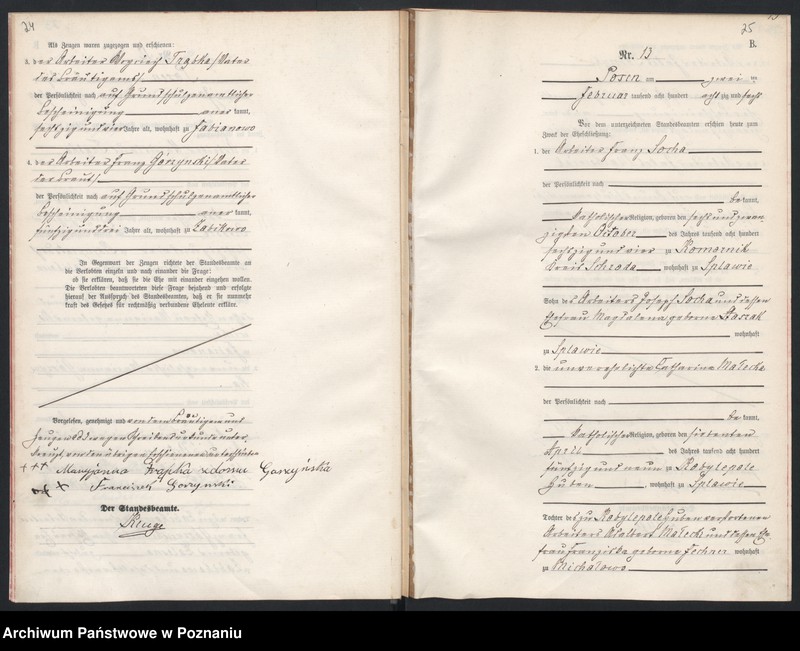 24
Als Zeugen waren zugezogen und erschienen:
3. der Arbeiter Woyciech Trąbka, Vater
des Bräutigams,
der Persönlichkeit nach auf Grund schulzenamtlicher
Bescheinigung anerkannt,
sechzig und vier Jahre alt, wohnhaft zu Fabianowo
4. der Arbeiter Franz Górzynski, Vater
der Braut,
der Persönlichkeit nach auf Grund schulzenamtlicher
Bescheinigung anerkannt,
fünfzig und drei Jahre alt, wohnhaft zu Zabikowo.
In Gegenwart der Zeugen richtete der Standesbeamte an
die Verlobten einzeln und nach einander die Frage:
ob sie erklären, daß sie die Ehe mit einander eingehen wollen.
Die Verlobten beantworteten diese Frage bejahend und erfolgte
hierauf der Ausspruch des Standesbeamten, daß er sie nunmehr
kraft des Gesetzes für rechtmäßig verbundene Eheleute erkläre.
Vorgelesen, genehmigt und von dem Bräutigam und
Zeugen wegen Schreibensunkunde unter-
kreuzt, von den übrigen Erschienenen unterschrieben
+++ Maryjanna Trąpka z domu Gorzyńska
+ Franciszek Gorzynski
Der Standesbeamte.
Kluge
25
B.
Nr. 13
Posen am zwei ten
Februar tausend acht hundert acht zig und sechs
Vor dem unterzeichneten Standesbeamten erschien heute zum
Zweck der Eheschließung:
1. der Arbeiter Franz Socha
der Persönlichkeit nach
bekannt,
katholischer Religion, geboren den sechs und zwan-
zigsten October des Jahres tausend acht hundert
sechzig und vier zu Komornik
Kreis Schroda, wohnhaft zu Splawie
Sohn des Arbeiters Joseph Socha und dessen
Ehefrau Magdalena geborene Staszak
wohnhaft
zu Splawie
2. die unverehelichte Catharina Małecka
der Persönlichkeit nach
bekannt,
katholischer Religion, geboren den siebenten
April des Jahres tausend acht hundert
fünfzig und neun zu Kobylepole
Huben, wohnhaft zu Splawie
Tochter des zu Kobylepole Huben verstorbenen
Arbeiters Adalbert Małecki und dessen Ehe-
frau Franziska geborene Fechner wohnhaft
zu Michałowo
Archiwum Państwowe w Poznaniu